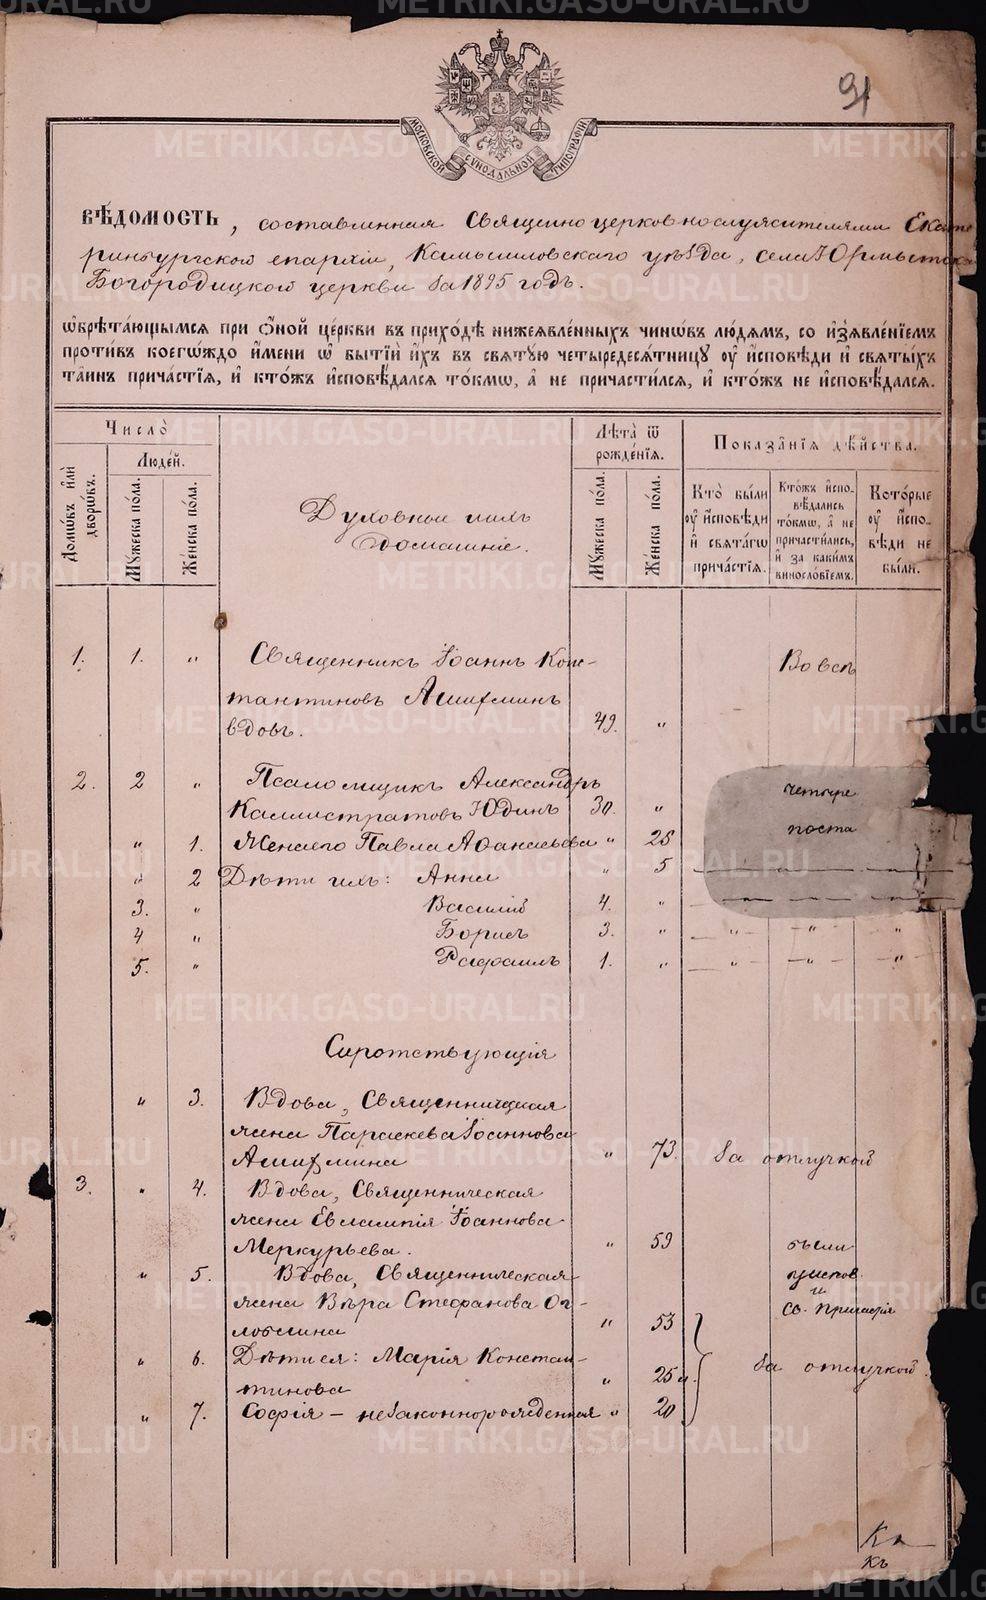 METRIKI.GASO-URAL.RU
91
МОСКОВСКОЙ СѴНОДАЛЬНОЙ ТИПОГРАФІИ
ВѢДОМОСТЬ, составленная Священноцерковнослужителями Екате
ринбургской епархіи, Камышловскаго уѣзда, села Юрмытск
Богородицкой церкви за 1895 годъ.
Ѡ҆брѣта́ющымсѧ при Ѻ҆́ной це́ркви въ прихо́дѣ нижеѧвле́нныхъ чинѡ́въ лю́демъ, со и҆з̾ѧвле́нїемъ
проти́въ коегѡ́ждо и҆́мени ѡ҆ бытїѝ и҆́хъ въ свѧту́ю четыредесѧ́тницу ᲂу҆ и҆́сповѣди и҆ свѧты́хъ
та̑инъ прича́стїѧ, и҆ кто́жъ и҆сповѣ́далсѧ то́кмѡ, а҆ не причасти́лсѧ, и҆ кто́жъ не и҆сповѣ́далсѧ.
Число̀
Домѡ́въ и҆лѝ дворѡ́въ.
Люде́й.
Мꙋ́жеска по́ла.
Же́нска по́ла.
Духовные и ихъ
домашніе.
Лѣ́та ѿ
рожде́нїѧ.
Мꙋ́жеска по́ла.
Же́нска по́ла.
Показа́нїѧ дѣ́йства.
Кто̀ бы́ли
ᲂу҆ и҆́сповѣди
и҆ свѧта́гѡ
прича́стїѧ.
Кто́жъ и҆спо-
вѣ́дались
то́кмѡ, а҆ не
причасти́лись,
и҆ за каки́мъ
виносло́вїемъ.
Кото́рые
ᲂу҆ и҆́спо-
вѣди не
бы́ли.
1. 1. „ Священникъ Іоаннъ Конс- Во всѣ
тантиновъ Ашихминъ
вдовъ. 49. „
2. 2 „ Псаломщикъ Александръ четыре
Каллистратовъ Юдинъ 30. „ поста
„ 1. Жена его Павла Аѳанасьева „ 25
„ 2 Дѣти ихъ: Анна „ 5
3. „ Василій 4. „
4 „ Борисъ 3. „ „ „ „
5. „ Рафаилъ 1. „ „ „ „
Сиротствующія
„ 3. Вдова, Священническая
жена Параскева Іоаннова
Ашихмина „ 73. За отлучкой
3. „ 4. Вдова, Священническая
жена Евлампія Іоаннова
Меркурьева. „ 59 были
„ 5. Вдова, Священническая у испов.
и
жена Вѣра Стефанова Ог- Св. Причастія
лоблина „ 53
„ 6. Дѣти ея: Марія Констан- За отлучкой.
тинова „ 25
„ 7. Софія - незаконнорожденная „ 20
къ